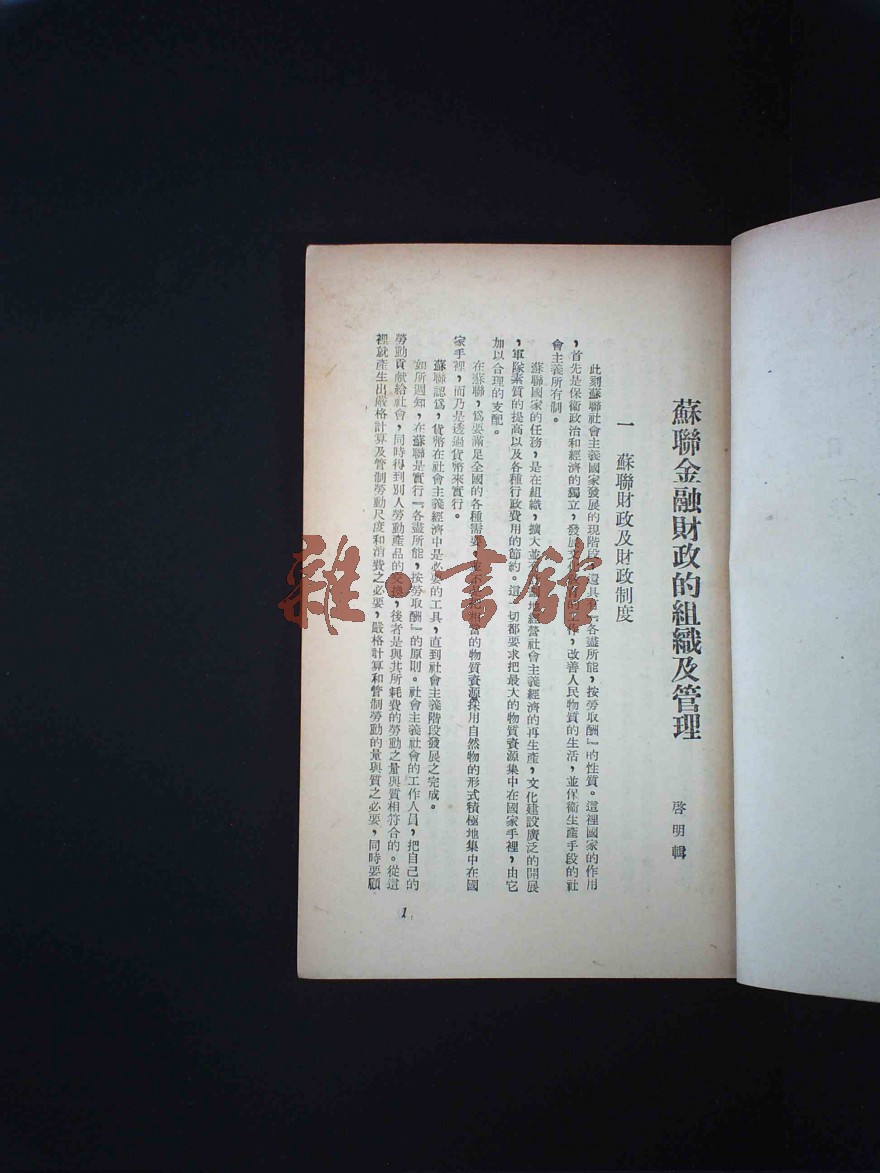 蘇聯金融財政的組織及管理
啓明輯
一 蘇聯財政及財政制度
此刻蘇聯社會主義國家發展的現階段,還具有『各盡所能,按勞取酬』的性質。這裡國家的作用
,首先是保衛政治和經濟的獨立,發展文化的工作,改善人民物質的生活,並保衛生產手段的社
會主義所有制。
蘇聯國家的任務,是在組織,擴大並不地經營社會主義經濟的再生產,文化建設廣泛的開展
,軍隊素質的提高以及各種行政費用的節約。這一切都要求把最大的物質資源集中在國家手裡,由它
加以合理的支配。
在蘇聯,爲要滿足全國的各種需要,並不是把相當的物質資源採用自然物的形式積極地集中在國
家手裡,而乃是透過貨幣來實行。
蘇聯認爲,貨幣在社會主義經濟中是必要的工具,直到社會主義階段發展之完成。
如所週知,在蘇聯是實行『各盡所能,按勞取酬』的原則。社會主義社會的工作人員,把自己的
勞動貢獻給社會,同時得到別人勞動產品的交換,後者是與其所耗費的勞動之量與質相符合的。從這
裡就產生出嚴格計算及管制勞動尺度和消費之必要,嚴格計算和管制勞動的量與質之必要,同時要顧
1
雜·書館